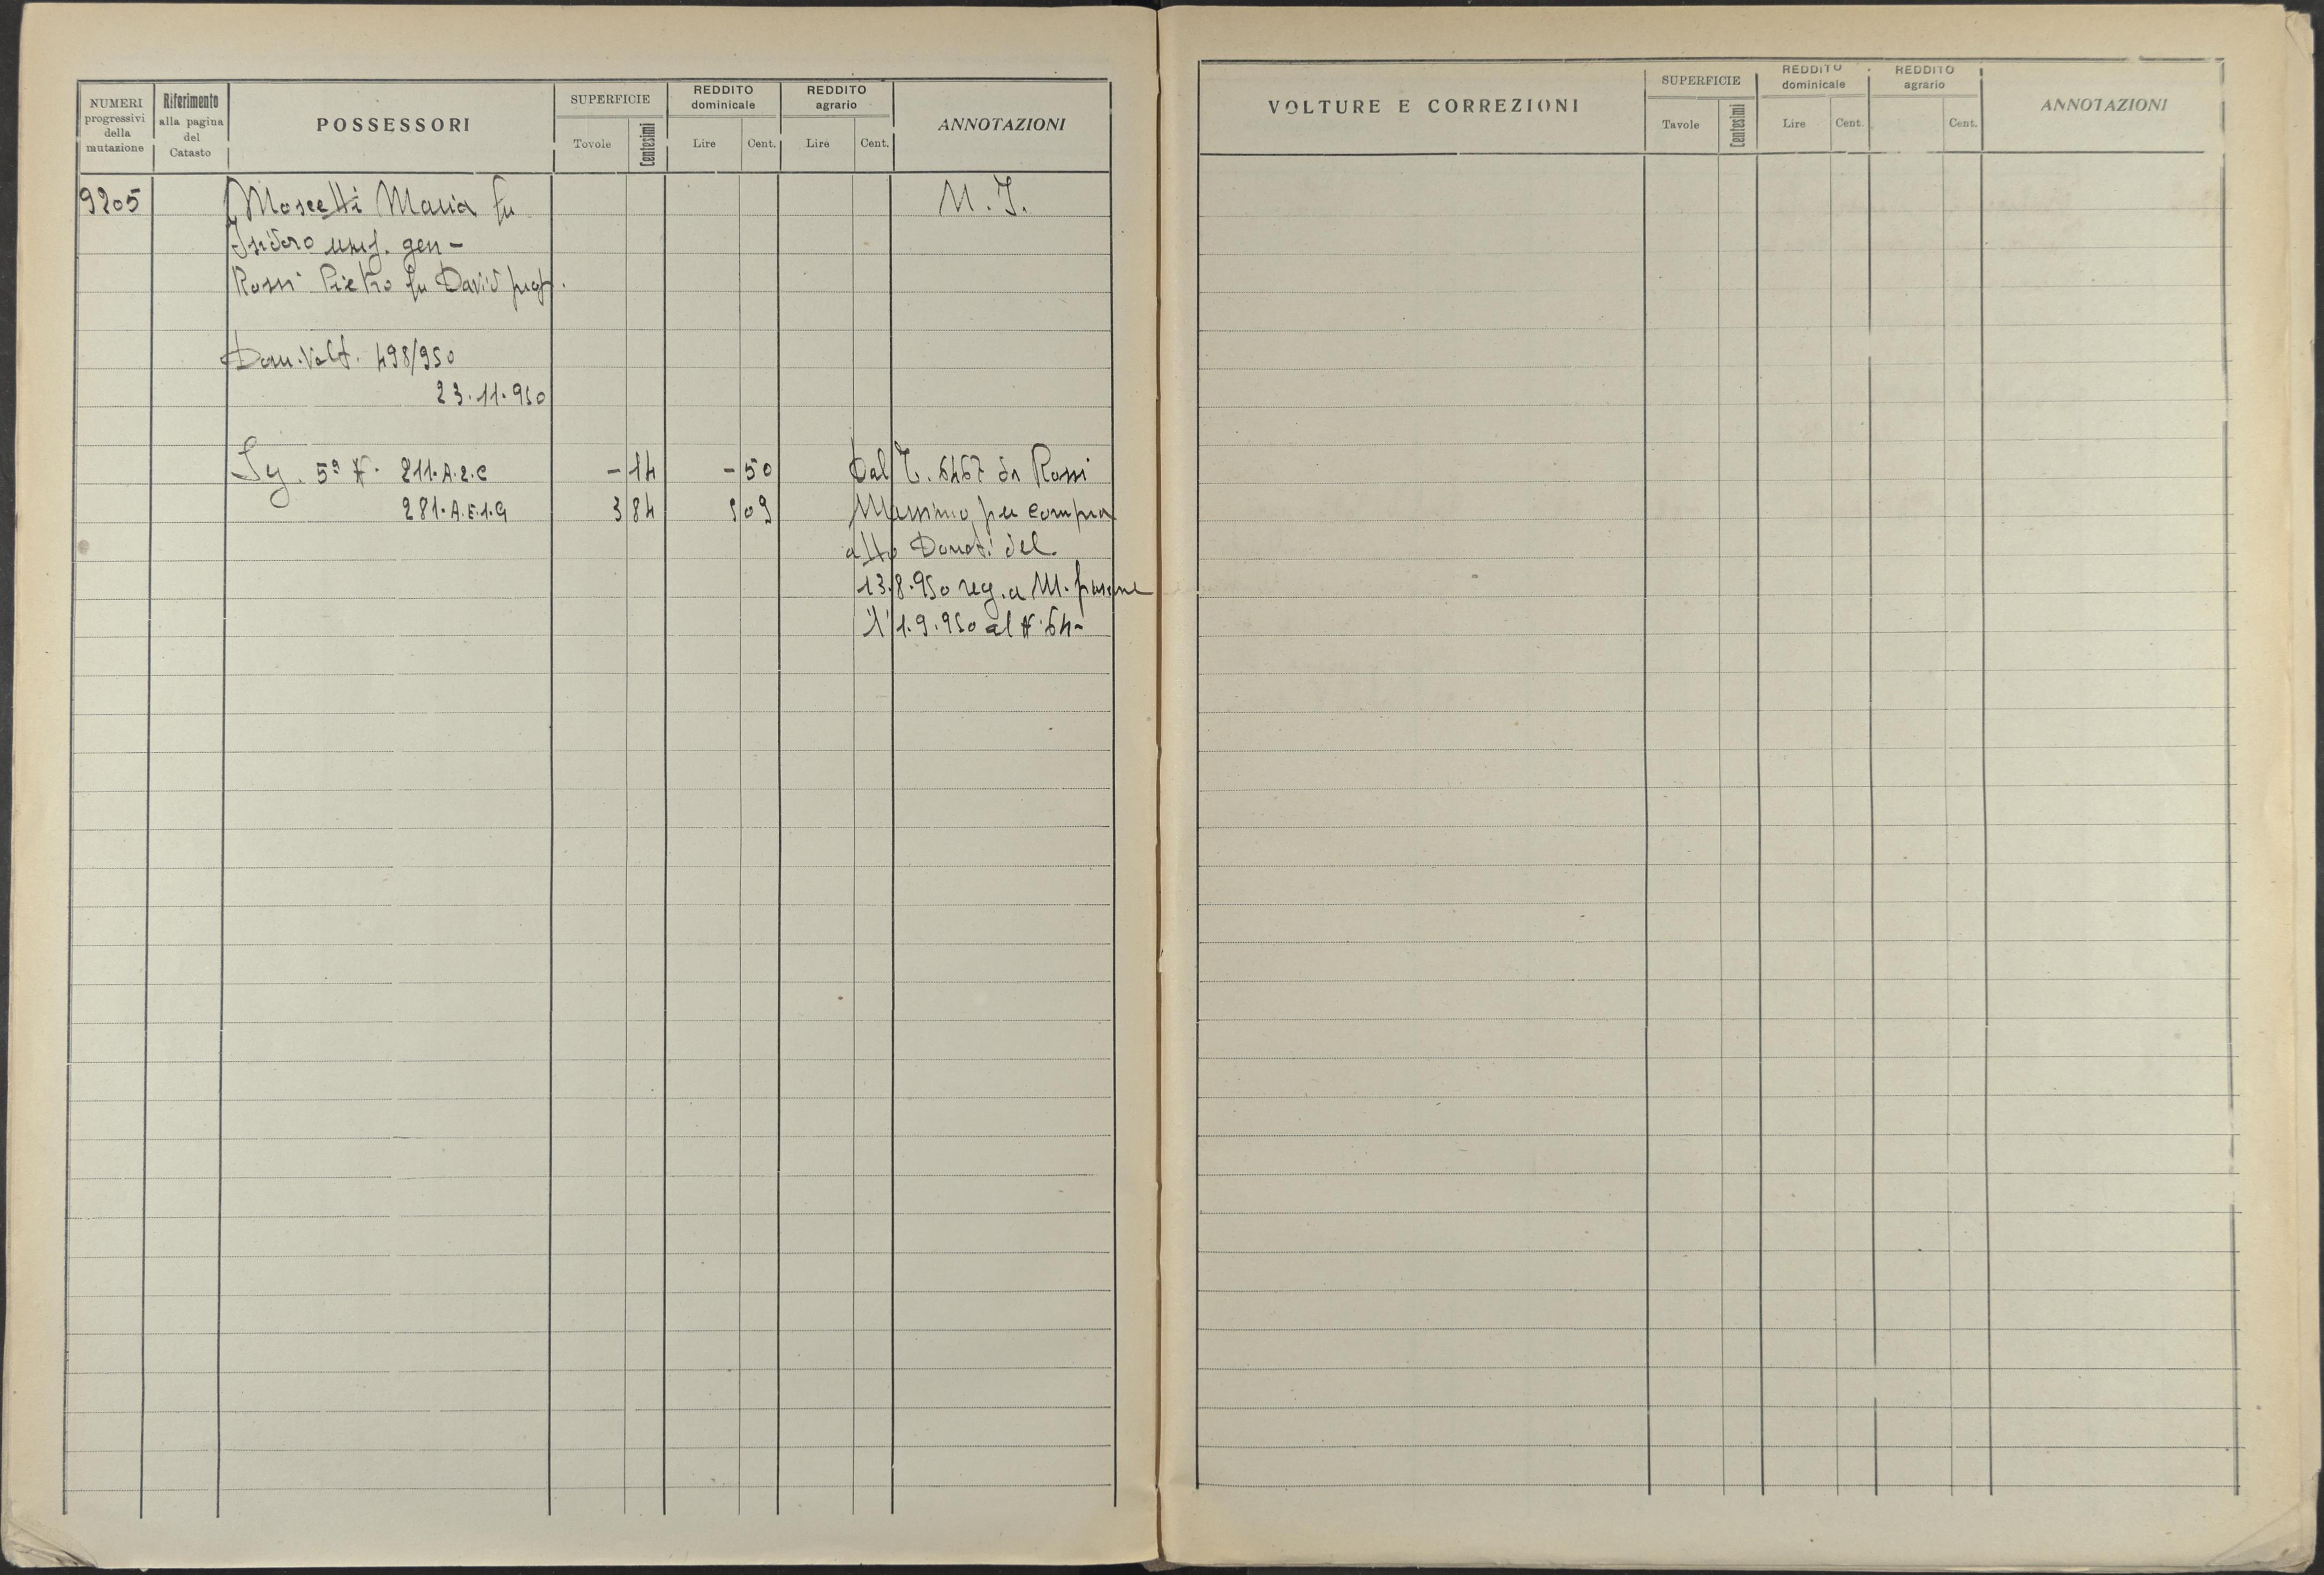 NUMERI progressivi della mutazione
Riferimento alla pagina del Catasto
POSSESSORI
SUPERFICIE
Tovole
Centesimi
REDDITO dominicale
Lire
Cent.
REDDITO agrario
Lire
Cent.
ANNOTAZIONI
9205
Moscetti Maria fu
M. I.
Isidoro usuf. gen -
Rossi Pietro fu David prop.
Dom. Volt. 498/950
23.11.950
Sez. 5ª N. 211. A. 2. C
- 14
- 50
Dal T. 6467 da Rossi
281. A. E. 1. G
3 84
9 09
Massimo per compra
atto Donati del
13.8.950 reg. a M. frascone
l' 1.9.950 al N. 64 -
VOLTURE E CORREZIONI
SUPERFICIE
Tavole
Centesimi
REDDITO dominicale
Lire
Cent.
REDDITO agrario
Cent.
ANNOTAZIONI